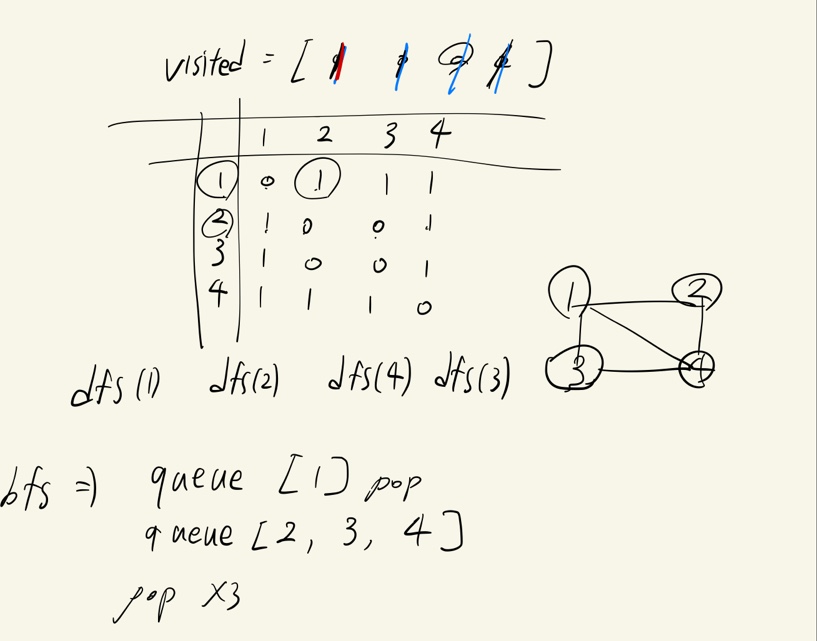 visited = [ ]
1 2 3 4
1 0 1 1 1
2 1 0 0 1
3 1 0 0 1
4 1 1 1 0
1 2
3 4
dfs(1) dfs(2) dfs(4) dfs(3)
bfs => queue [1] pop
queue [2, 3, 4]
pop x3